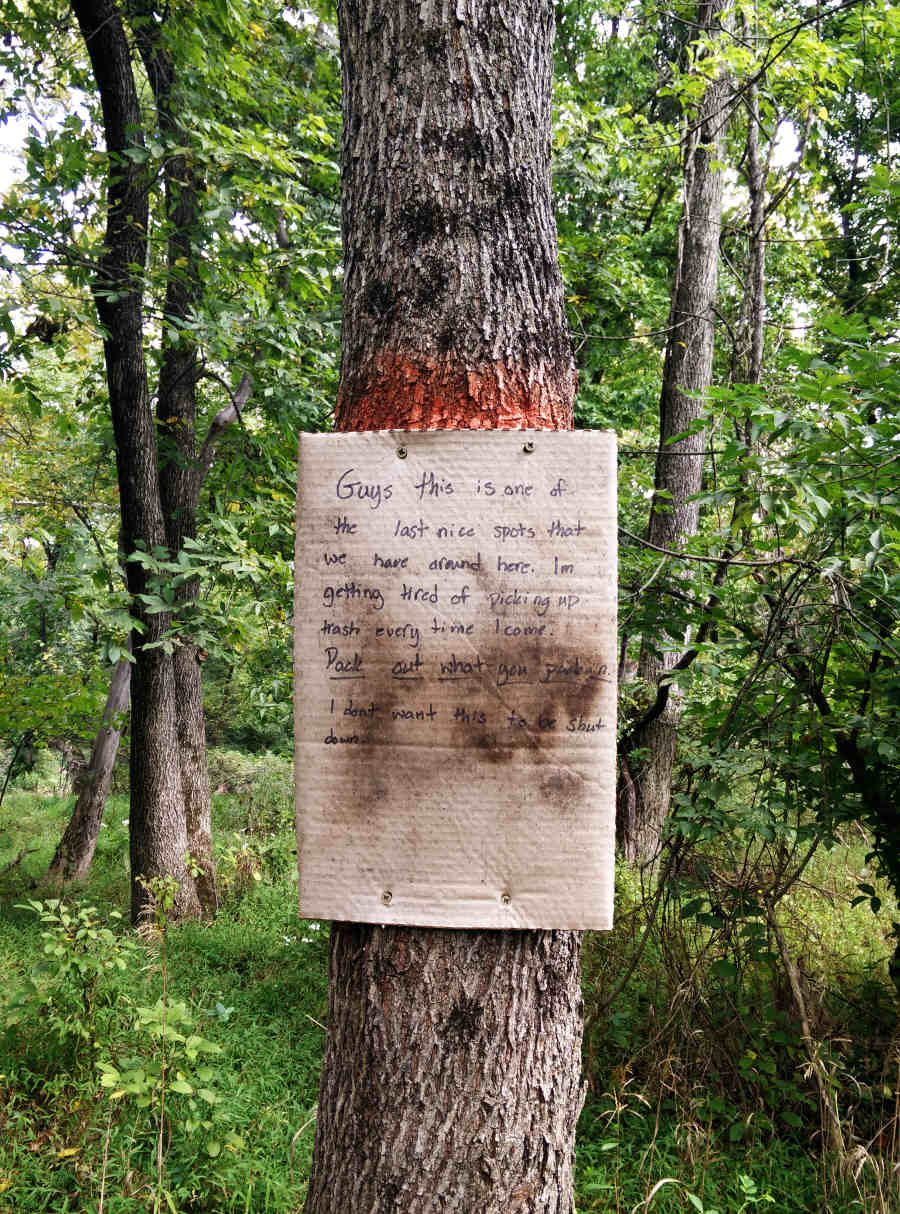 Guys this is one of
the last nice spots that
we have around here. Im
getting tired of picking up
trash every time I come.
Pack out what you pack in.
I dont want this to be shut
down.